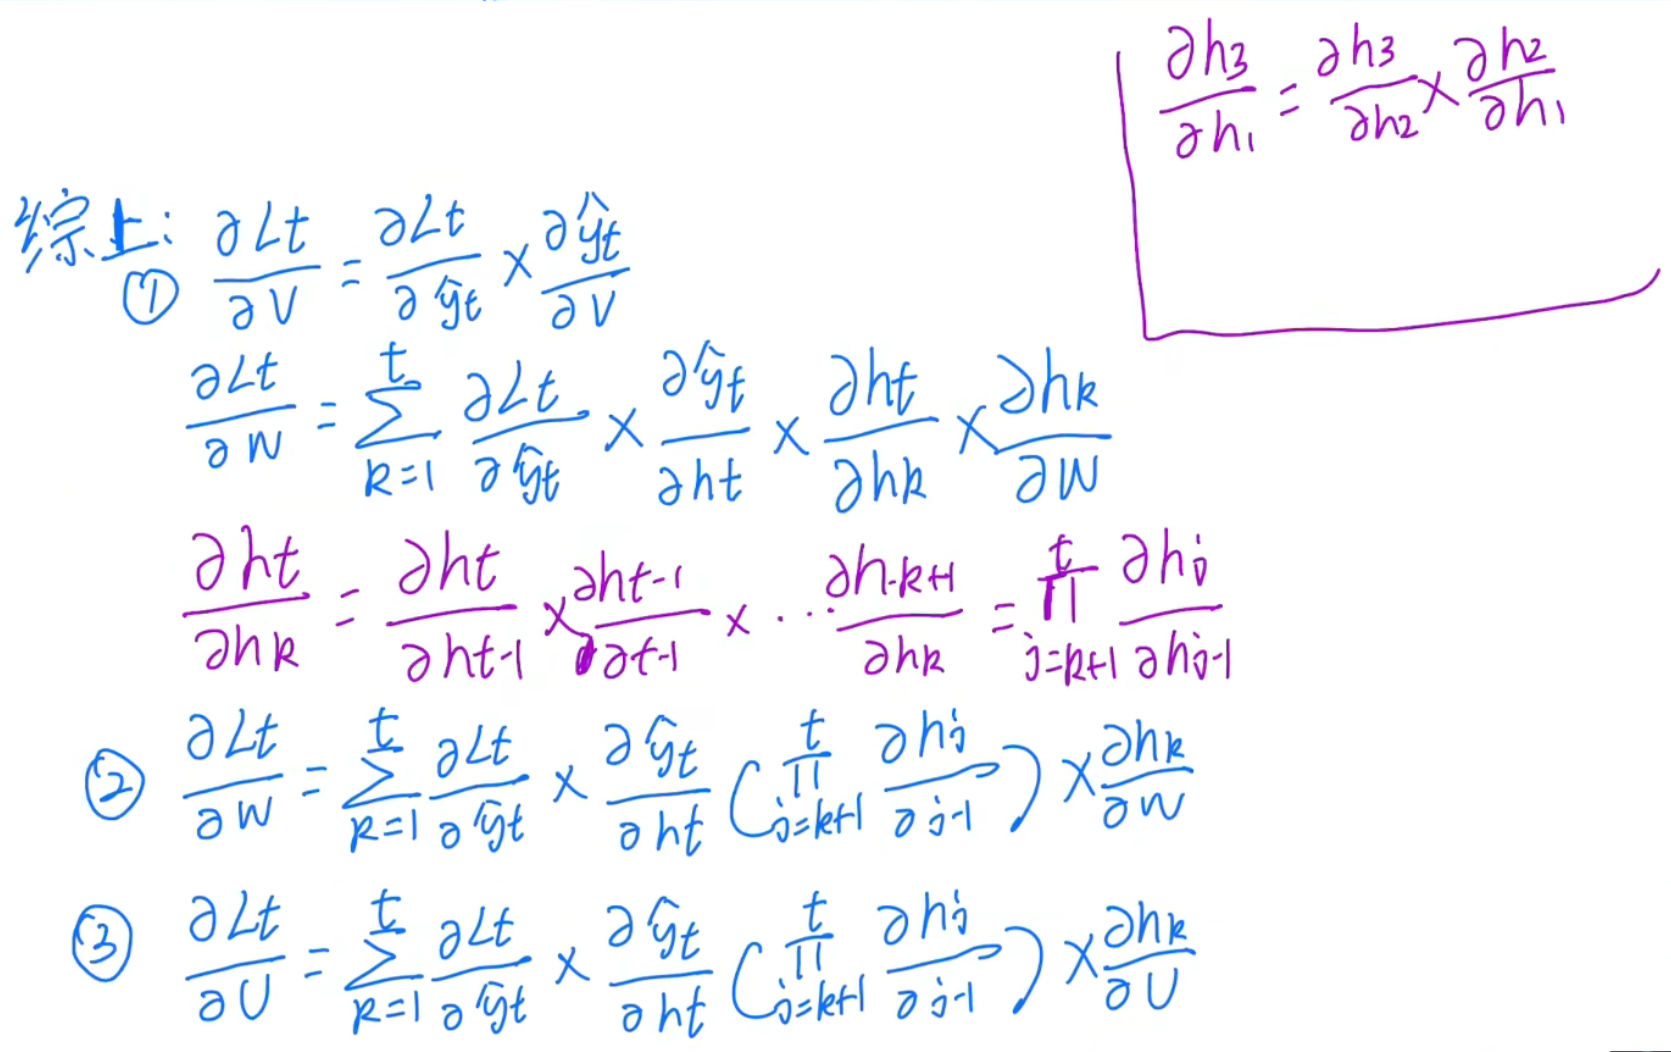 ∂h3/∂h1 = ∂h3/∂h2 × ∂h2/∂h1
综上:
① ∂Lt/∂V = ∂Lt/∂ŷt × ∂ŷt/∂V
∂Lt/∂W = ∑_{k=1}^{t} ∂Lt/∂ŷt × ∂ŷt/∂ht × ∂ht/∂hk × ∂hk/∂W
∂ht/∂hk = ∂ht/∂ht-1 × ∂ht-1/∂t-1 × ··· ∂h-k+1/∂hk = ∏_{j=k+1}^{t} ∂hj/∂hj-1
② ∂Lt/∂W = ∑_{k=1}^{t} ∂Lt/∂ŷt × ∂ŷt/∂ht (∏_{j=k+1}^{t} ∂hj/∂j-1) × ∂hk/∂W
③ ∂Lt/∂U = ∑_{k=1}^{t} ∂Lt/∂ŷt × ∂ŷt/∂ht (∏_{j=k+1}^{t} ∂hj/∂j-1) × ∂hk/∂U